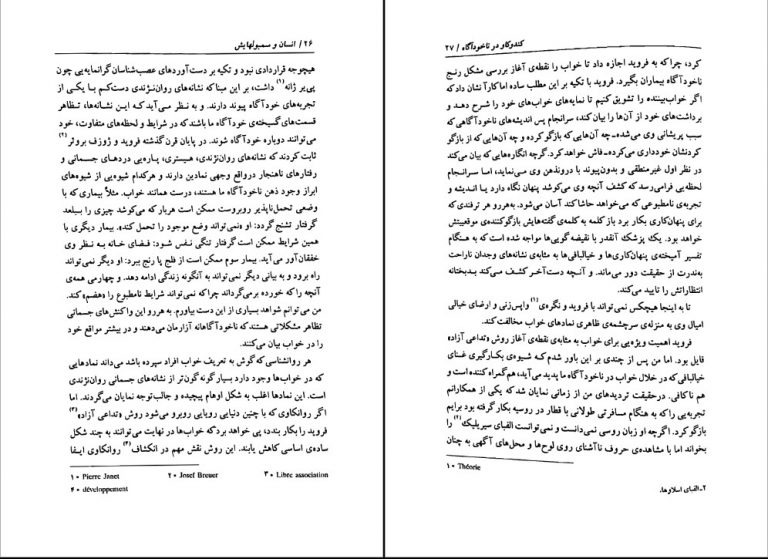 ۲۶ / انسان و سمبولهایش
هیچوجه قراردادی نبود و تکیه بر دست‌آوردهای عصب‌شناسان گرانمایه‌یی چون
پی‌یر ژانه (۱) داشت، بر این مبناکه نشانه‌های روان‌نژندی دست‌کم با یکی از
تجربه‌های خودآگاه پیوند دارند. و به نظر می‌آید که این نشانه‌ها، تظاهر
قسمت‌های گسیخته‌ی خودآگاه ما باشند که در شرایط و لحظه‌های متفاوت، خود
می‌توانند دوباره خودآگاه شوند. در پایان قرن گذشته فروید و ژوزف بروئر (۲)
ثابت کردند که نشانه‌های روان‌نژندی، هیستری، پاره‌یی دردهای جسمانی و
رفتارهای ناهنجار درواقع وجهی نمادین دارند و هرکدام شیوه‌یی از شیوه‌های
ابراز وجود ذهن ناخودآگاه ما هستند، درست همانند خواب. مثلاً بیماری که با
وضعی تحمل‌ناپذیر روبروست ممکن است هربار که می‌کوشد چیزی را ببلعد
گرفتار تشنج گردد: او «نمی‌تواند وضع موجود را تحمل کند». بیمار دیگری با
همین شرایط ممکن است گرفتار تنگی نفس شود: فضای خانه به نظر وی
خفقان‌آور می‌آید. بیمار سوم ممکن است از فلج پا رنج ببرد: او دیگر نمی‌تواند
راه برود و به بیانی دیگر نمی‌تواند به آنگونه زندگی ادامه دهد. و چهارمی همه‌ی
آنچه را که خورده برمی‌گرداند چراکه نمی‌تواند شرایط نامطبوع را «هضم» کند.
من می‌توانم شواهد بسیاری از این دست بیاورم. به‌هررو این واکنش‌های جسمانی
تظاهر مشکلاتی هستند که ناخودآگاهانه آزارمان می‌دهند و در بیشتر مواقع خود
را در خواب بیان می‌کنند.
هر روانشناسی که گوش به تعریف خواب افراد سپرده باشد می‌داند نمادهایی
که در خواب‌ها وجود دارد بسیار گونه‌گون‌تر از نشانه‌های جسمانی روان‌نژندی
است. این نمادها اغلب به شکل اوهام پیچیده و جالب‌توجه نمایان می‌گردند. اما
اگر روانکاوی که با چنین دنیایی رویایی روبرو می‌شود روش «تداعی آزاد» (۳)
فروید را بکار بندد، پی خواهد برد که خواب‌ها در نهایت می‌توانند به چند شکل
ساده‌ی اساسی کاهش یابند. این روش نقش مهم در انکشاف (۴) روانکاوی ایفا
۱ • Pierre Janet ۲ • Josef Breuer ۳ • Libre association
۴ • développement
کندوکاو در ناخودآگاه / ۲۷
کرد، چراکه به فروید اجازه داد تا خواب را نقطه‌ی آغاز بررسی مشکل رنج
ناخودآگاه بیماران بگیرد. فروید با تکیه بر این مطلب ساده اماکارآ نشان داد که
اگر خواب‌بیننده را تشویق کنیم تا نمایه‌های خواب‌های خود را شرح دهد و
برداشت‌های خود از آن‌ها را بیان کند، سرانجام پس اندیشه‌های ناخودآگاهی که
سبب پریشانی وی می‌شده-چه آن‌هایی که بازگو کرده و چه آن‌هایی که از بازگو
کردنشان خودداری می‌کرده-فاش خواهد کرد. گرچه انگاره‌هایی که بیان می‌کند
در نظر اول غیرمنطقی و بدون‌پیوند با درونذهن وی می‌نماید، اما سرانجام
لحظه‌یی فرامی‌رسد که کشف آنچه وی می‌کوشد پنهان نگاه دارد یا اندیشه و
تجربه‌ی نامطبوعی که می‌خواهد حاشاکند آسان می‌شود. به‌هررو هر ترفندی که
برای پنهان‌کاری بکار برد باز کلمه به کلمه‌ی گفته‌هایش بازگوکننده‌ی موقعیتش
خواهد بود. یک پزشک آنقدر با نقیضه‌گویی‌ها مواجه شده است که به هنگام
تفسیر آمیخته‌ی پنهان‌کاری‌ها و خیالبافی‌ها به مثابه‌ی نشانه‌های وجدان ناراحت
به‌ندرت از حقیقت دور می‌ماند. و آنچه دست‌آخر کشف می‌کند بدبختانه
انتظاراتش را تایید می‌کند.
تا به اینجا هیچکس نمی‌تواند با فروید و نگره‌ی (۱) واپس‌زنی و ارضای خیالی
امیال وی به منزله‌ی سرچشمه‌ی ظاهری نمادهای خواب مخالفت‌کند.
فروید اهمیت ویژه‌یی برای خواب به مثابه‌ی نقطه‌ی آغاز روش «تداعی آزاد»
قایل بود. اما من پس از چندی بر این باور شدم که شیوه‌ی بکارگیری غنای
خیالبافی که در خلال خواب در ناخودآگاه ما پدید می‌آید، هم‌گمراه کننده است و
هم ناکافی. درحقیقت تردیدهای من از زمانی نمایان شد که یکی از همکارانم
تجربه‌یی را که به هنگام مسافرتی طولانی با قطار در روسیه بکار گرفته بود برایم
بازگو کرد. اگرچه او زبان روسی نمی‌دانست و نمی‌توانست الفبای سیریلیک (۲) را
بخواند اما با مشاهده‌ی حروف ناآشنای روی لوح‌ها و محل‌های آگهی به چنان
۱ • Théorie
۲ـ الفبای اسلاوها.